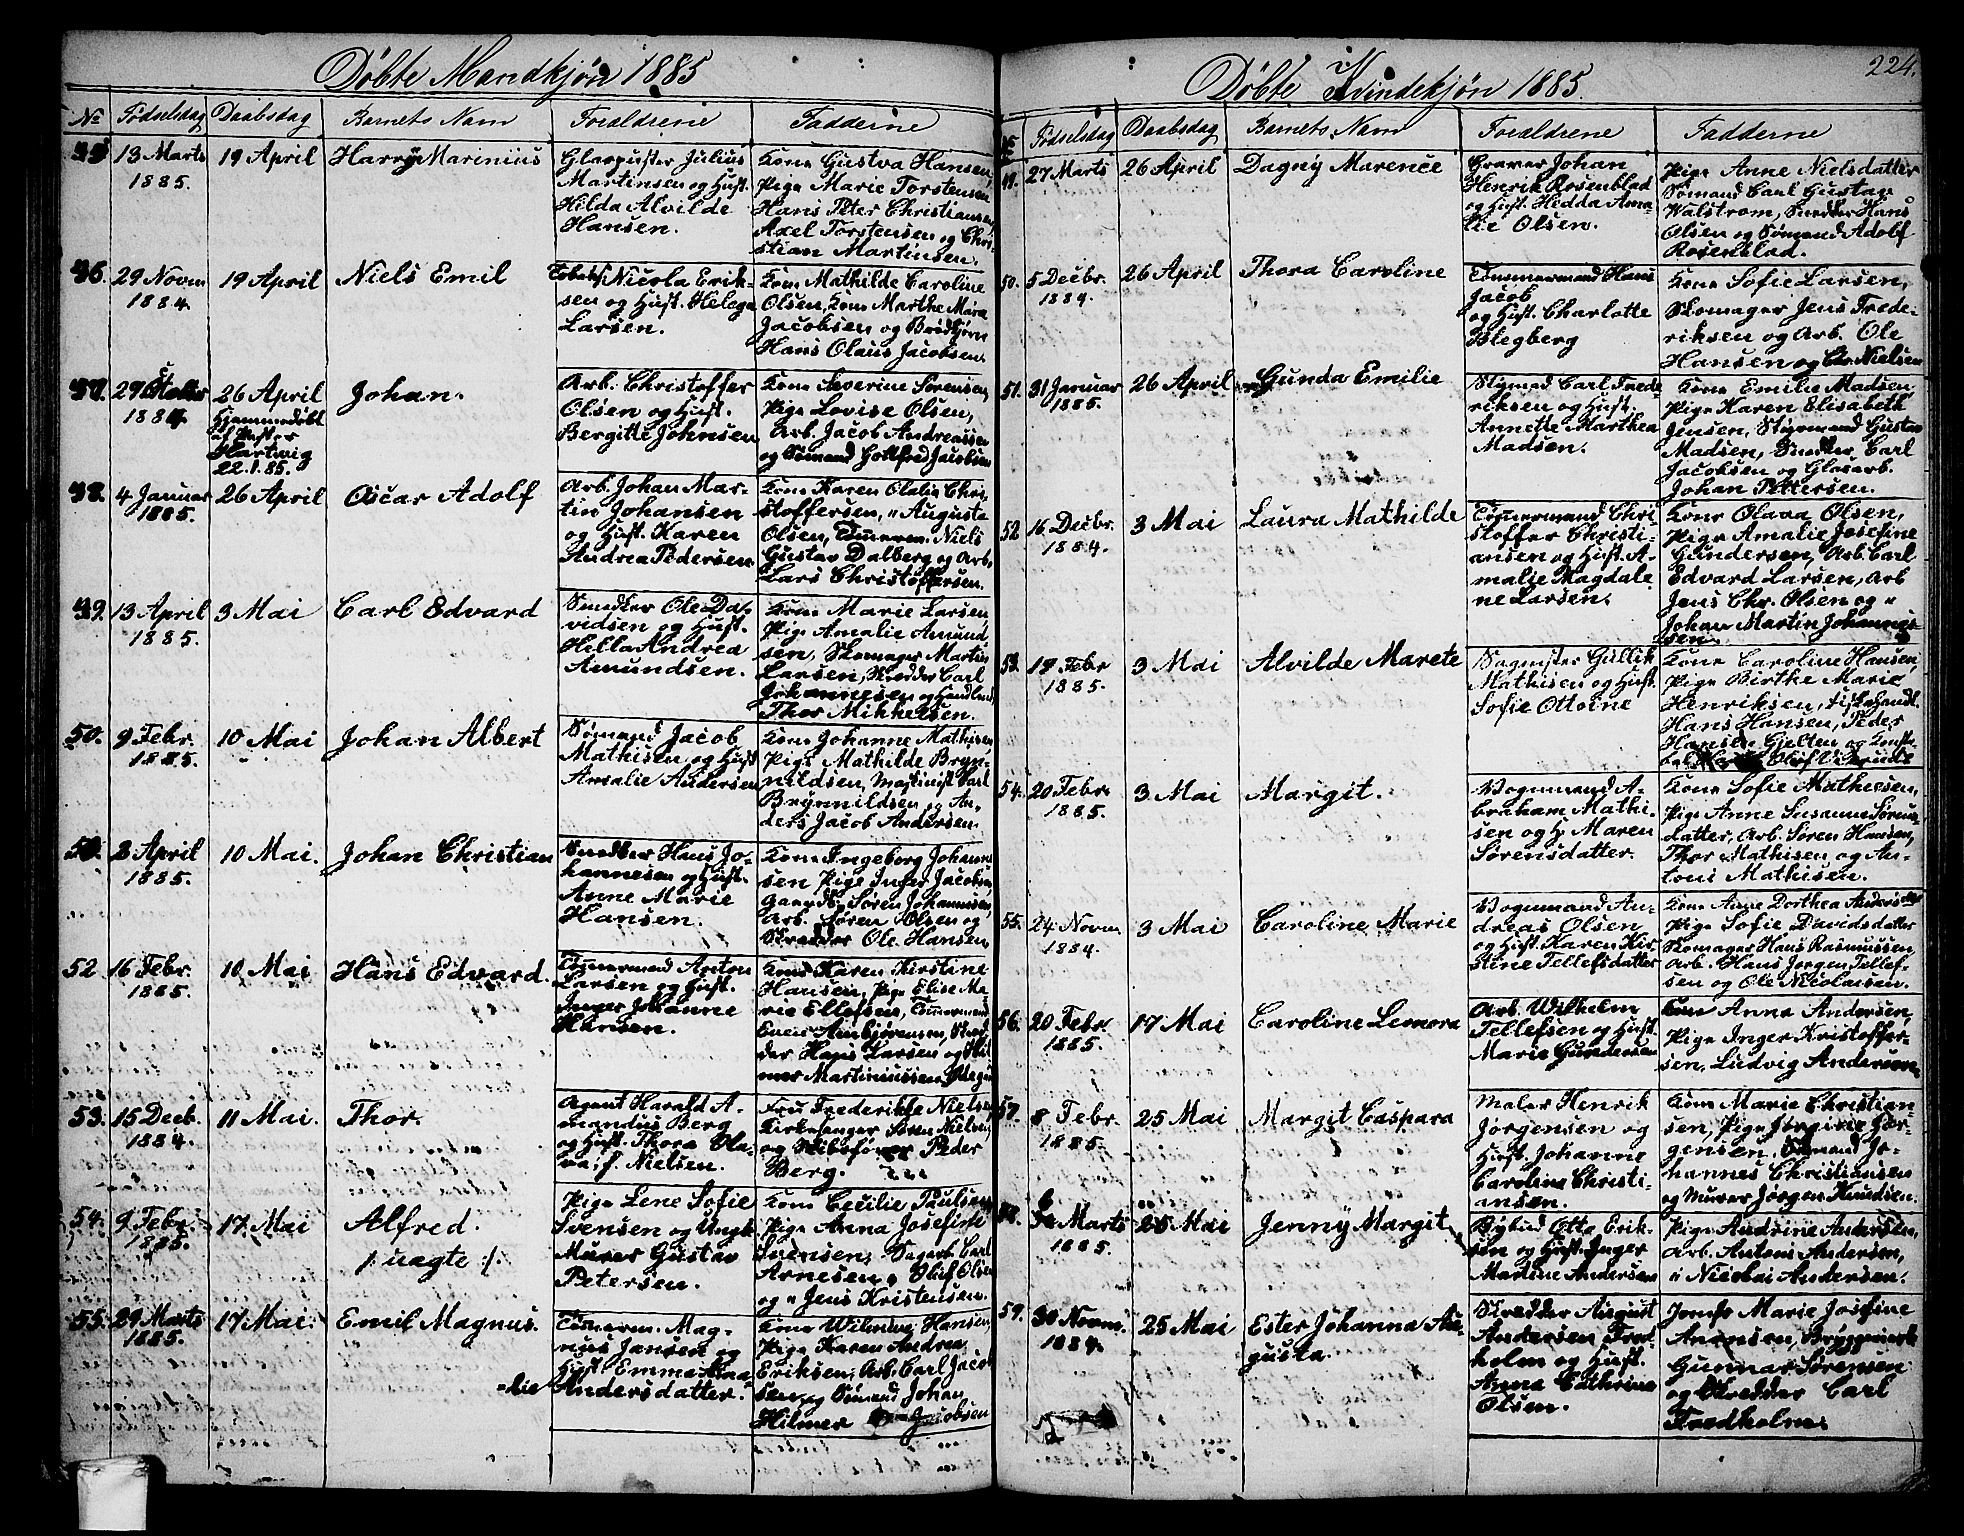 Døbte Mandkjøn 1885
№ Fødselsdag Daabsdag Barnets Navn Forældrene Fadderne
45 13 Marts 1885. 19 April Harry Marinius
Glaspuster Julius
Martinsen og Hust.
Hilda Alvilde
Hansen.
Kone Gustva Hansen,
Pige Marie Torstensen
Hans Peter Christiansen,
Axel Torstensen og Chri-
stian Martinsen.
46. 29 Novm 1884. 19 April Niels Emil
Nicola Erik-
sen og Hust. Helega
Larsen.
Kone Mathilde Caroline
Olsen, Kone Marthe Maria
Jacobsen og Brødkjører
Hans Olaus Jacobsen.
47. 29 1884 26 April
Hjemmedøbt
af
Hartwig
22.1.85.
Johan.
Arb. Christoffer
Olsen og Hust.
Bergitte Johnsen
Kone Severine Sørensen,
Pige Lovise Olsen,
Arb. Jacob Andreassen
og Sømand Gottfred Jacobsen
48. 4 Januar 1885. 26 April Oscar Adolf
Arb. Johan Mar-
tin Johansen
og Hust. Karen
Andrea Pedersen
Kone Karen Olalia Chri-
stoffersen, " Augusta
Olsen, Tømmerm. Niels
Gustav Dalberg og Arb.
Lars Christoffersen.
49. 13 April 1885. 3 Mai Carl Edvard
Snedker Ole Da-
vidsen og Hust.
Hella Andrea
Amundsen.
Kone Marie Larsen,
Pige Amalie Amund-
sen, Skomager Martin
Larsen, Skrædder Carl
Johannesen og Handlende
Thor Mikkelsen.
50. 9 Febr. 1885. 10 Mai Johan Albert
Sømand Jacob
Mathisen og Hust
Amalie Andersen
Kone Johanne Mathisen
Pige Mathilde Bryn-
nildsen, Maskinist Carl
Brynnildsen og An-
ders Jacob Andersen.
8 April 1885. 10 Mai. Johan Christian
Snedker Hans Jo-
hannesen og Hust.
Anne Marie
Hansen.
Kone Ingeborg Johanne-
sen Pige Inger Jacobsen
Søren Johannesen,
Arb. Søren Olsen og
Skrædder Ole Hansen
52 16 Febr. 1885. 10 Mai Hans Edvard.
Tømmermand Anton
Larsen og Hust.
Inger Johanne
Hansen.
Kone Karen Kirstine
Hansen, Pige Elise Ma-
rie Ellefsen, Tømmermand
Ambjørnsen,
Hans Larsen og
Martiniussen
53. 15 Decb. 1884. 11 Mai. Thor.
Agent Harald A-
mandus Berg
og Hust. Thora Ola-
va, f. Nielsen.
Fru Frederikke Nielsen,
Kirkesanger Søren Nielsen,
og Skibsfører Peder
Berg.
54. 9 Febr. 1885. 17. Mai Alfred.
/: uægte :/
Pige Lene Sofie
Svensen og Ungk
Murer Gustav
Petersen.
Kone Cecilie Paulsen,
Pige Anna Josefine
Svensen, Sagarb. Carl
Arnesen, Oluf Olsen
og " Jens Kristensen.
55. 29 Marts 1885. 17 Mai. Emil Magnus.
Tømmerm. Mag-
nus Jansen og
Hust. Emma Ama-
lie Andersdatter.
Kone Wilmine Hansen,
Pige Karen Andrea
Eriksen, Arb. Carl Jacob-
sen, og Sømand Johan
Hilmer Jacobsen
Døbte Kvindekjøn 1885. 224.
№ Fødselsdag Daabsdag Barnets Navn Forældrene Fadderne
49. 27 Marts 26 April Dagny Marence
Graver Johan
Henrik Rosenblad
og Hust. Hedda Ama-
lie Olsen.
Pige Anne Nielsdatter
Sømand Carl Gustav
Walstrøm, Snedker Hans
Olsen og Sømand Adolf
Rosenblad.
50. 5 Decbr. 1884. 26 April Thora Caroline
Tømmermand Hans
Jacob
og Hust. Charlotte
Blegberg
Kone Sofie Larsen,
Skomager Jens Frede-
riksen og Arb. Ole
Hansen og Nielsen
51. 31 Januar 1885. 26 April Gunda Emilie
Styrmd Carl Frede-
riksen og Hust.
Annette Marthea
Madsen.
Kone Emilie Madsen
Pige Karen Elisabeth
Jensen, Styrmand Gustav
Madsen, Snedker Carl
Jacobsen og Glasarb.
Johan Pettersen.
52 16 Decbr. 1884. 3 Mai Laura Mathilde
Tømmermand Chri-
stoffer Christi-
ansen og Hust. A-
malie Magdale
ne Larsen.
Kone Olava Olsen,
Pige Amalie Josefine
Gundersen, Arb Carl
Edvard Larsen, Arb
Jens Chr. Olsen og "
Johan Martin Johannes-
sen.
53. 19 Febr 1885. 3 Mai Alvilde Marete
Sagmster Gullik
Mathisen og Hust.
Sofie Ottoine
Kone Caroline Hansen,
Pige Birthe Marie
Henriksen, Fiskehandl.
Hans Hansen, Peder
Hansen Gjelten og
54. 20 Febr. 1885. 3 Mai Margit.
Vognmand A-
braham Mathi-
sen og H. Maren
Sørensdatter.
Kone Sofie Mathiesen,
Pige Anne Susanne Sørens-
datter, Arb. Søren Hansen,
Thor Mathisen, og An-
toni Mathisen.
55. 24 Novm 1884. 3 Mai Caroline Marie
Vognmand An-
dreas Olsen
og Hust. Karen Kir-
stine Tellefsdatter
Kone Anne Dorthea Andersdtr
Pige Sofie Davidsdatter
Skomager Hans Rasmussen
Arb. Hans Jørgen Tellef-
sen og Ole Nicolaisen.
56. 20 Febr. 1885. 17 Mai Caroline Leonora
Arb. Wilhelm
Tellefsen og Hust.
Marie Gundersen
Kone Anna Andersen,
Pige Inger Kristoffer-
sen, Ludvig Andersen
57. 8 Febr. 1885. 25 Mai Margit Caspara
Maler Henrik
Jørgensen og
Hust. Johanne
Caroline Christi-
ansen.
Kone Marie Christian-
sen, Pige Jørgine Jør-
gensen, Sømand Jo-
hannes Christiansen
og Murer Jørgen Knudsen.
58. Marts 1885. 25 Mai Jenny Margit
Otto Erik-
sen og Hust. Inger
Martine Andersen
Pige Andrine Andersen,
Arb. Antons Andersen,
" Nicolai Andersen.
59. 30 Novm. 1884. 25 Mai Ester Johanna Au-
gusta.
Skredder August
Andersen Fred-
holm og Hust.
Anna Cathrine
Olsen.
Jomfr Marie Josefine
Arnesen,
Gunnar Sørensen
og Skredder Carl
Fredholm.